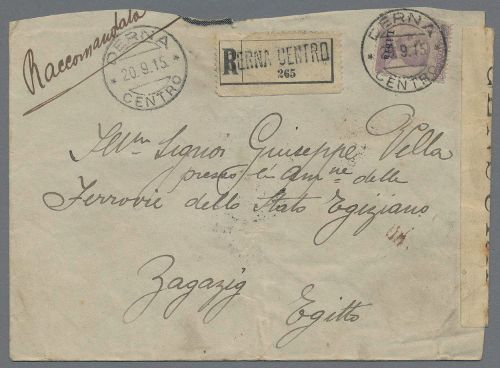 Raccomandata
DERNA
* 20.9.15 *
CENTRO
R DERNA CENTRO
265
DERNA
20.9.15
* CENTRO *
Ill.mo Signor Giuseppe Vella
presso l'Amm.ne delle
Ferrovie dello Stato Egiziano
Zagazig
Egitto